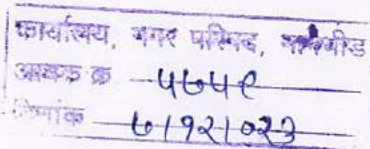 कार्यालय, नगर परिषद, नागभीड
आवक क्र ५७५९
दिनांक ७/१२/०२३